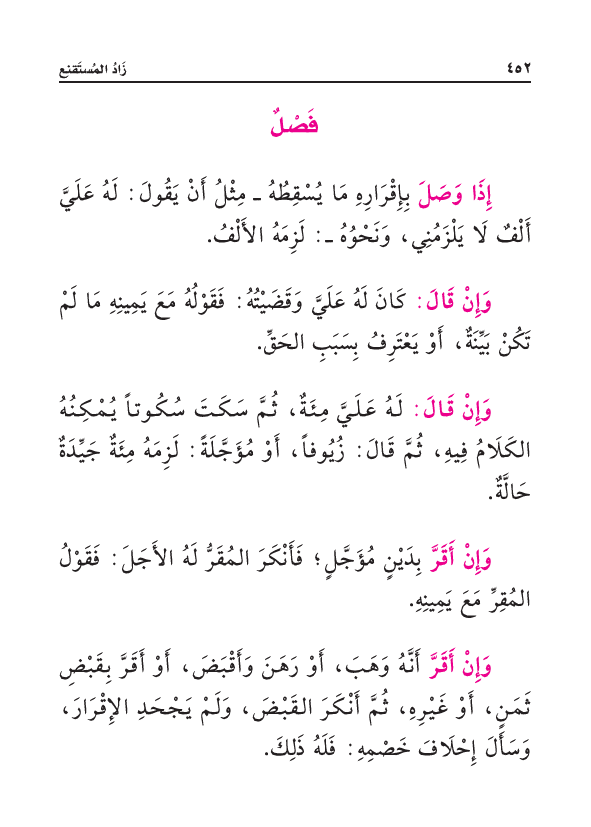 ٤٥٢ زَادُ المُستَقنِع
فَصْلٌ
إِذَا وَصَلَ بِإِقْرَارِهِ مَا يُسْقِطُهُ ـ مِثْلُ أَنْ يَقُولَ: لَهُ عَلَيَّ
أَلْفٌ لَا يَلْزَمُنِي، وَنَحْوُهُ ـ: لَزِمَهُ الأَلْفُ.
وَإِنْ قَالَ: كَانَ لَهُ عَلَيَّ وَقَضَيْتُهُ: فَقَوْلُهُ مَعَ يَمِينِهِ مَا لَمْ
تَكُنْ بَيِّنَةٌ، أَوْ يَعْتَرِفُ بِسَبَبِ الحَقِّ.
وَإِنْ قَالَ: لَهُ عَلَيَّ مِئَةٌ، ثُمَّ سَكَتَ سُكُوتاً يُمْكِنُهُ
الكَلَامُ فِيهِ، ثُمَّ قَالَ: زُيُوفاً، أَوْ مُؤَجَّلَةً: لَزِمَهُ مِئَةٌ جَيِّدَةٌ
حَالَّةٌ.
وَإِنْ أَقَرَّ بِدَيْنٍ مُؤَجَّلٍ؛ فَأَنْكَرَ المُقَرُّ لَهُ الأَجَلَ: فَقَوْلُ
المُقِرِّ مَعَ يَمِينِهِ.
وَإِنْ أَقَرَّ أَنَّهُ وَهَبَ، أَوْ رَهَنَ وَأَقْبَضَ، أَوْ أَقَرَّ بِقَبْضِ
ثَمَنٍ، أَوْ غَيْرِهِ، ثُمَّ أَنْكَرَ القَبْضَ، وَلَمْ يَجْحَدِ الإِقْرَارَ،
وَسَأَلَ إِحْلَافَ خَصْمِهِ: فَلَهُ ذَلِكَ.